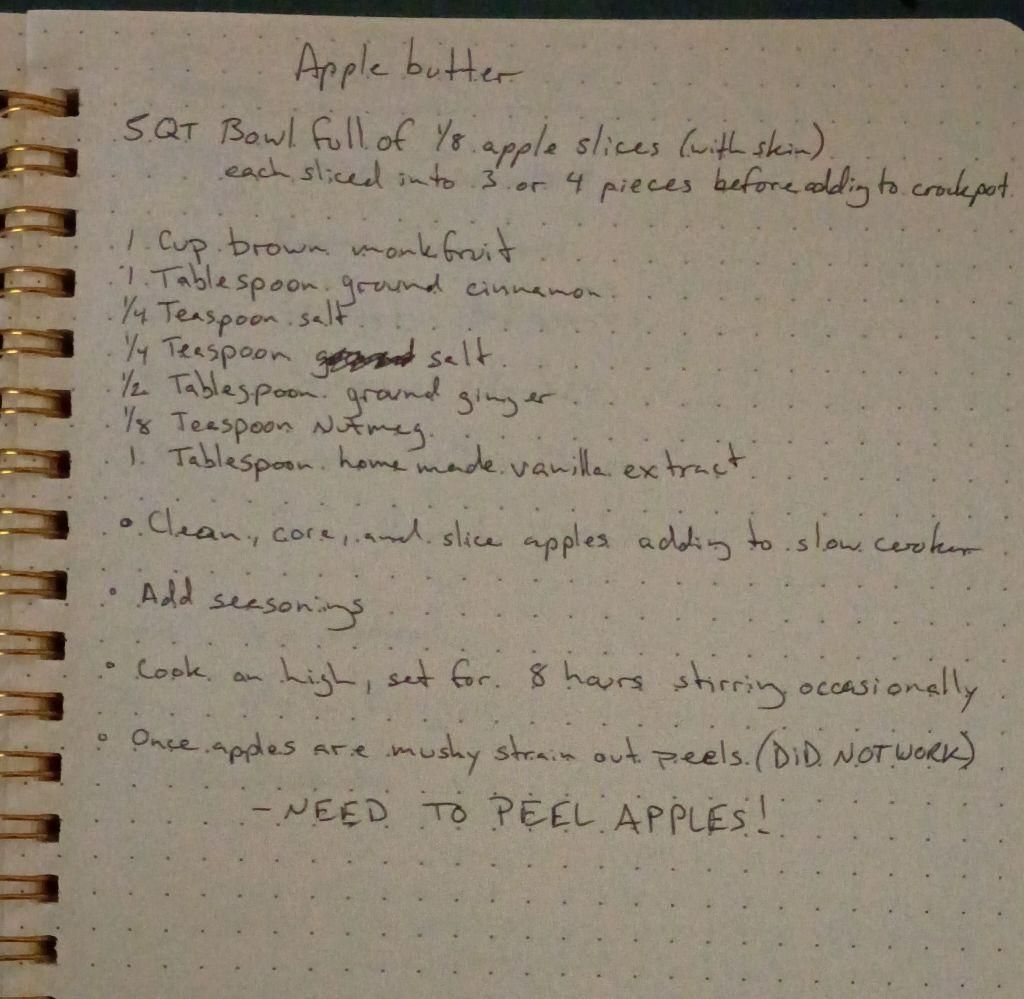 Apple butter
5 QT Bowl full of 1/8 apple slices (with skin)
each sliced into 3 or 4 pieces before adding to crockpot.
1 Cup brown monkfruit
1 Tablespoon ground cinnamon
1/4 Teaspoon salt
1/4 Teaspoon salt
1/2 Tablespoon ground ginger
1/8 Teaspoon Nutmeg
1 Tablespoon homemade vanilla extract
• Clean, core, and slice apples adding to slow cooker
• Add seasonings
• Cook on high, set for 8 hours stirring occasionally
• Once apples are mushy strain out peels (DID NOT WORK)
- NEED TO PEEL APPLES!